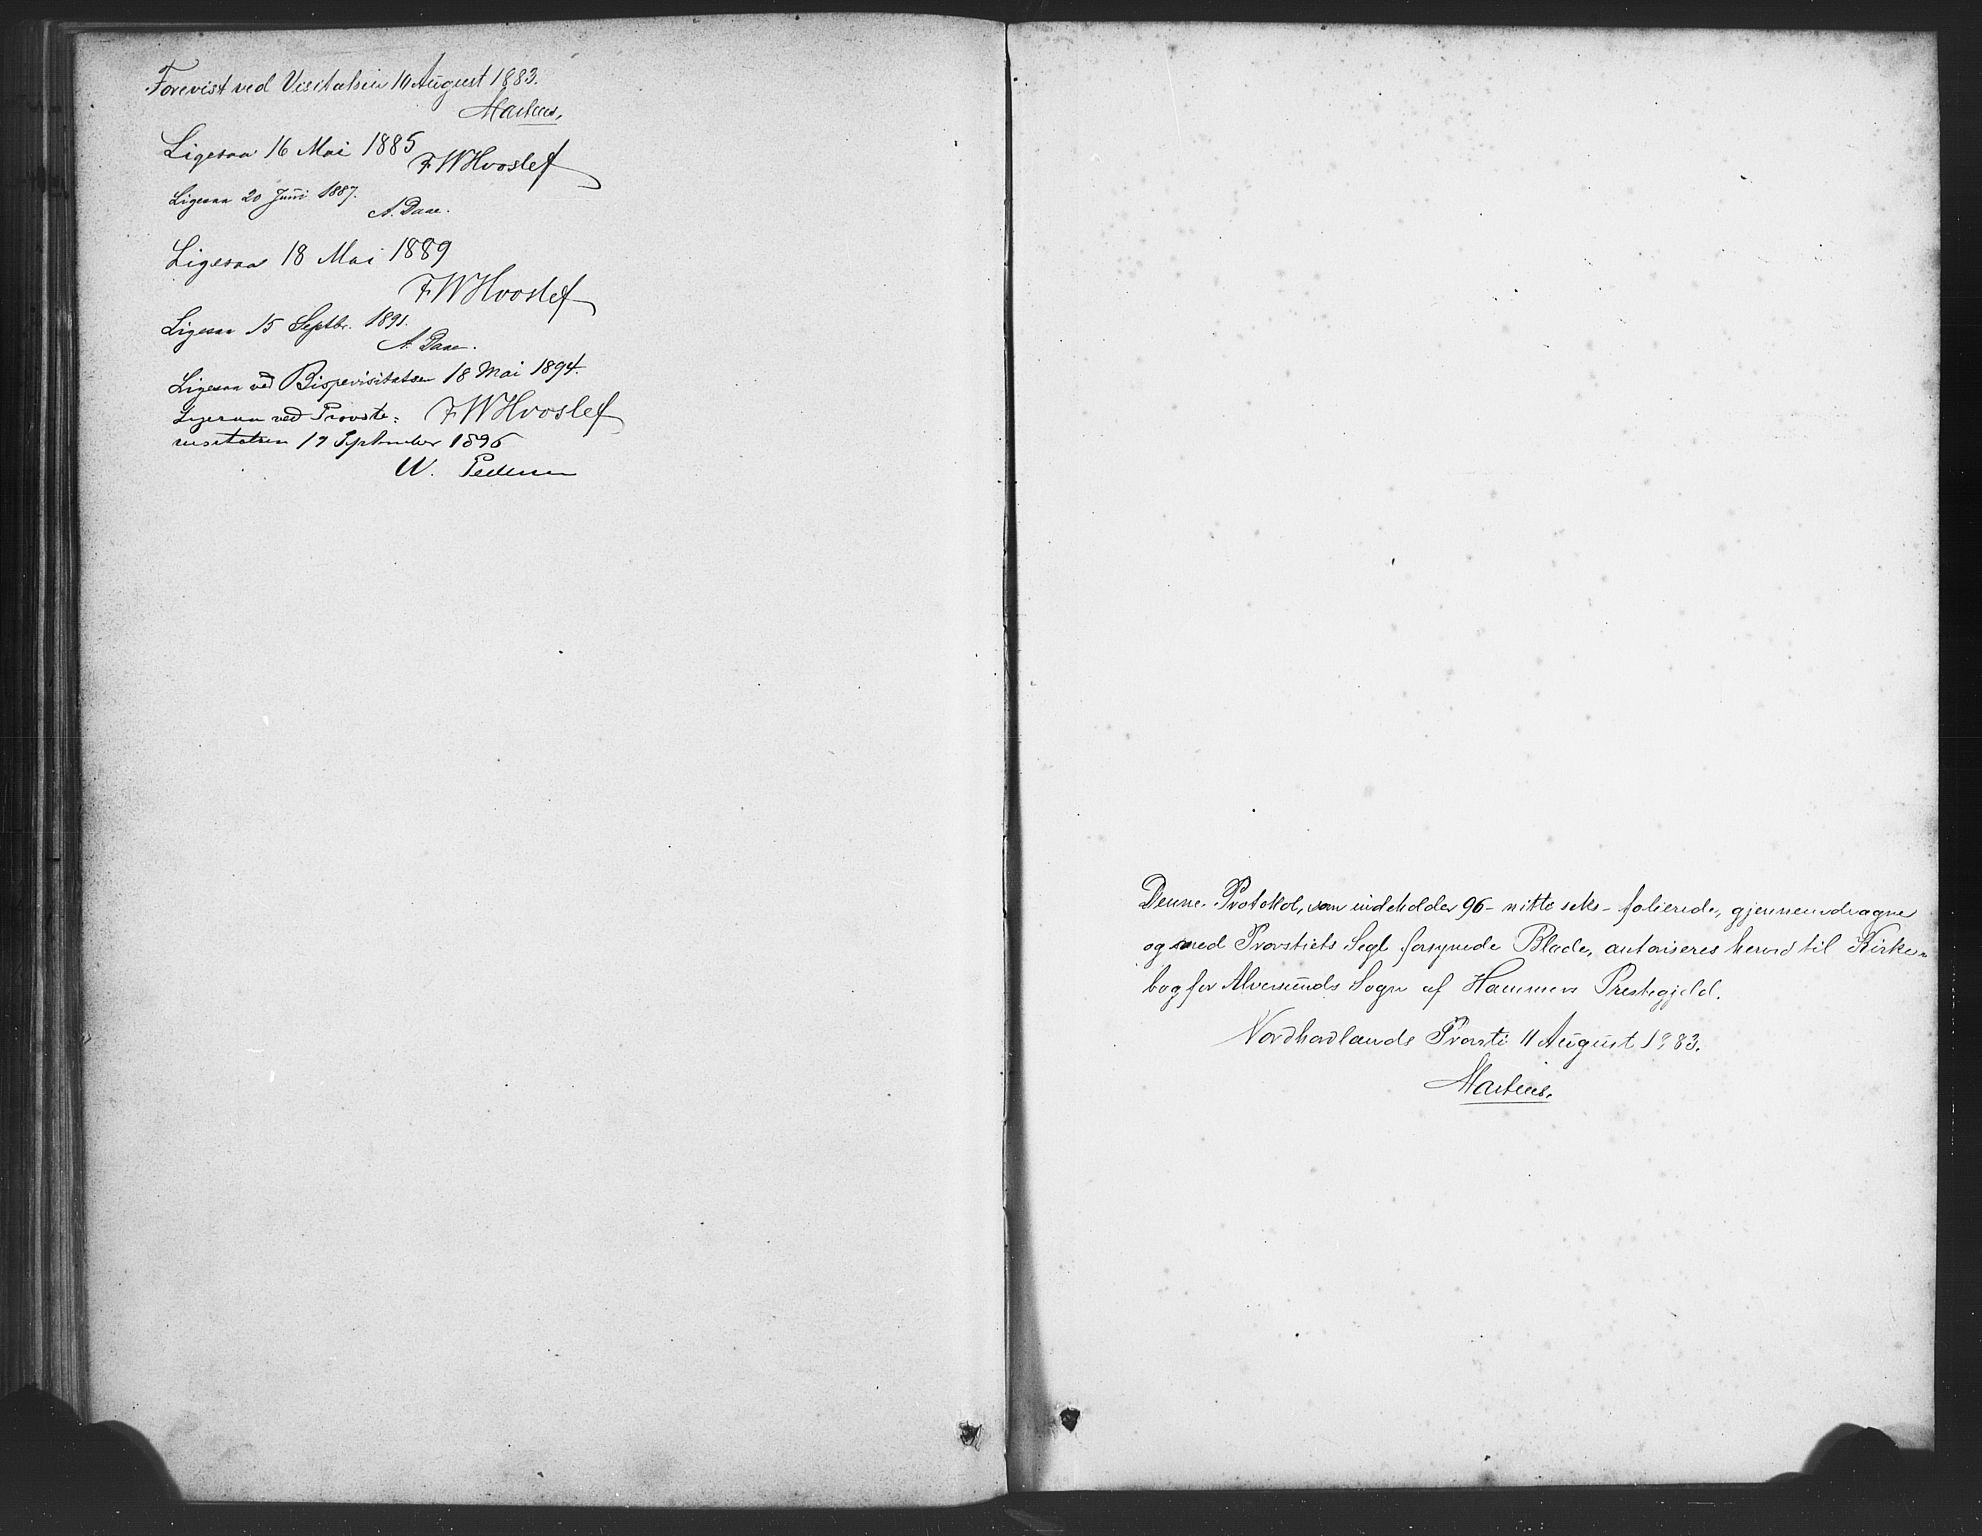 Forevist ved Visitatsen 10 August 1883.
Martens.
Ligesaa 16 Mai 1885
FWHvoslef
Ligesaa 20 Juni 1887.
A. Daae.
Ligesaa 18 Mai 1889
FWHvoslef
Ligesaa 15 Septbr. 1891.
A. Daae.
Ligesaa ved Bispevisitatsen 18 Mai 1894.
FWHvoslef
Ligesaa ved Provste-
visitatsen 17 September 1896
W. Pedersen
Denne Protokol, som indeholder 96 - nitti seks - folierede, gjennemdragne
og med Provstiets Segl forsynede Blade, autoriseres herved til Kirke-
bog for Alversunds Sogn af Hammers Prestegjeld.
Nordhordlands Provsti 11 August 1883.
Martens.